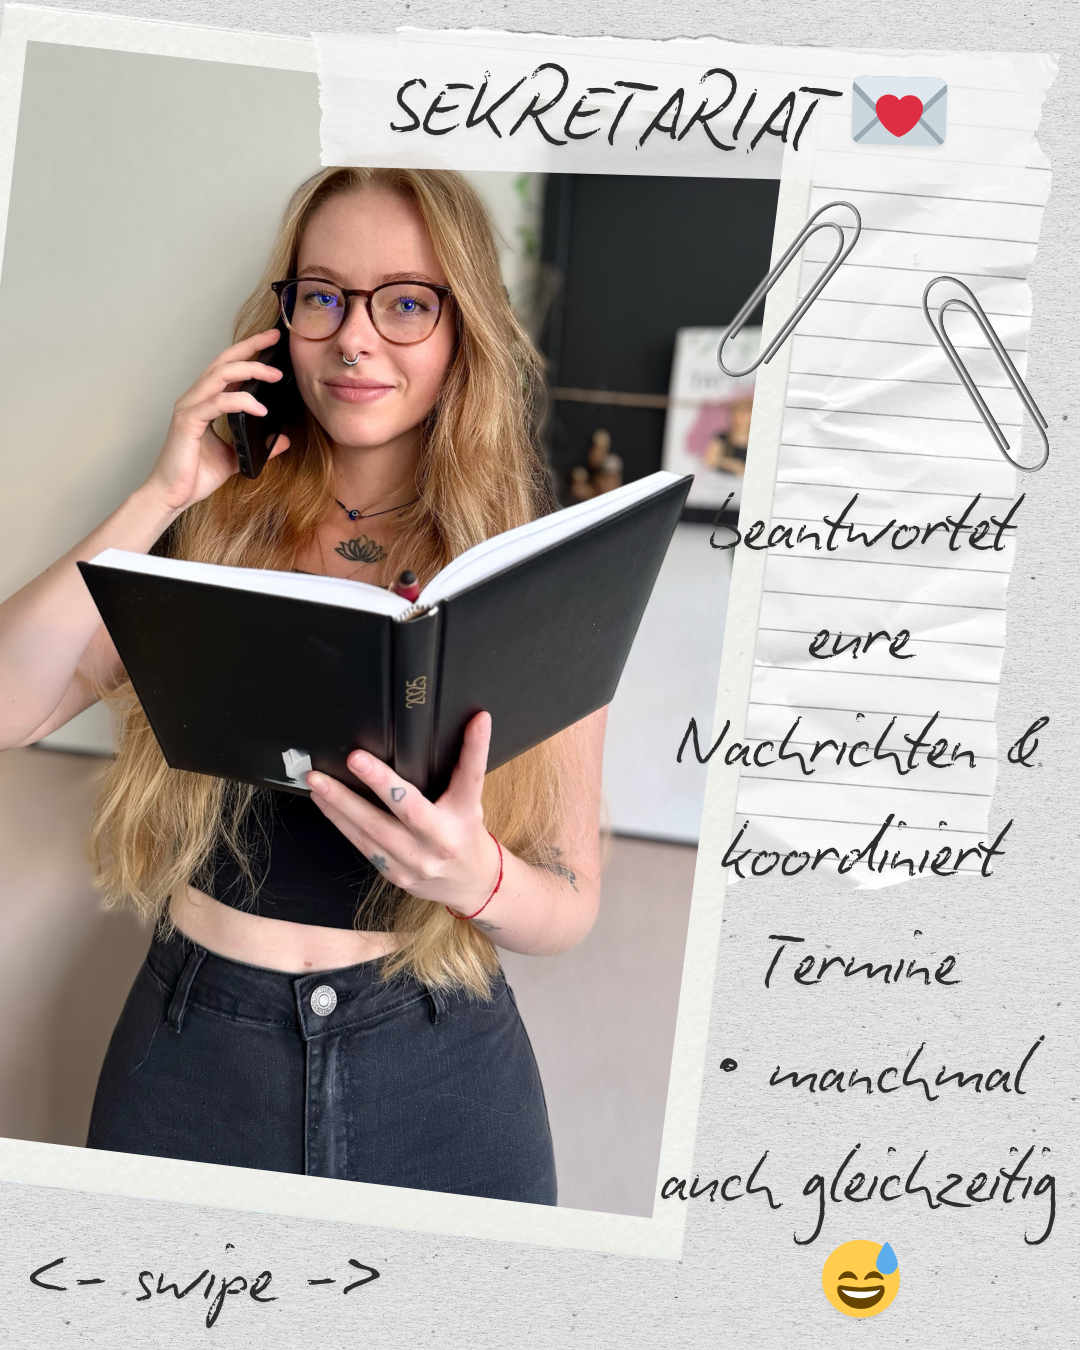 SEKRETARIAT 💌
beantwortet
eure
Nachrichten &
koordiniert
Termine
• manchmal
auch gleichzeitig
😅
2025
<- swipe ->